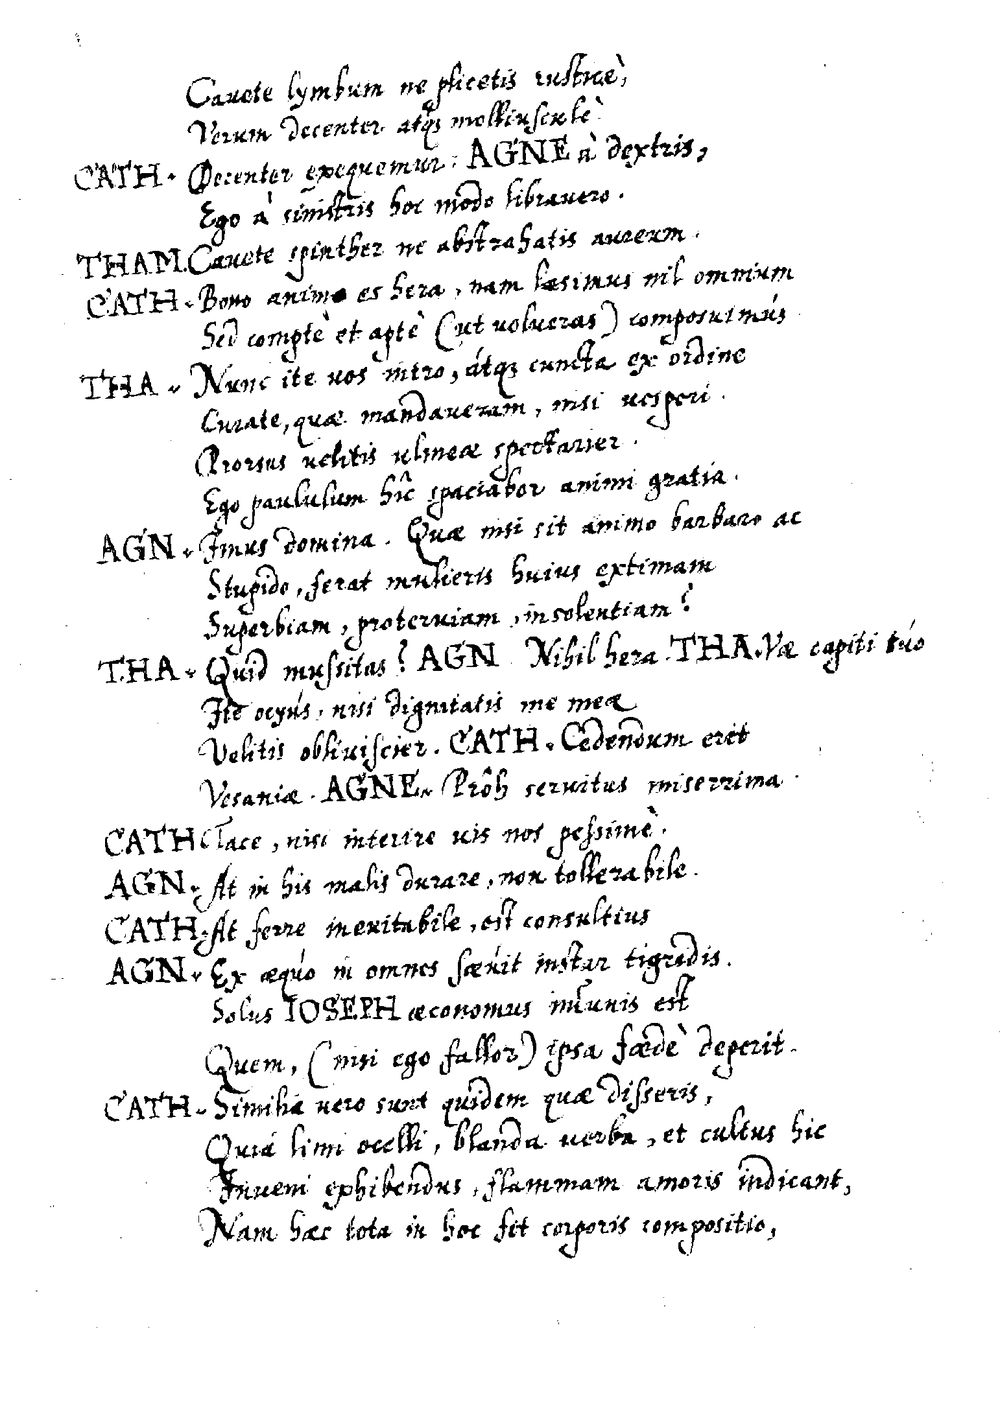 Cauete lymbum ne plicetis rusticè,
Verum decenter atq; molliusculè
CATH. Decenter exequemur: AGNE à dextris,
Ego à sinistris hoc modo librauero.
THAM. Cauete spinther ne abstrahatis aureum.
CATH. Bono animo es hera, nam læsimus nil omnium
Sed comptè et aptè (ut uolueras) composuimús
THA. Nunc ite uos intro, átq; cuncta ex ordine
Curate, quæ mandaueram, nisi uesperi.
Prorsus uelitis ulmeæ spectarier.
Ego paululum hîc spaciabor animi gratia.
AGN. Imus domina. Quæ nisi sit animo barbaro ac
Stupido, ferat mulieris huius extimam
Superbiam, proteruiam, insolentiam?
THA. Quid mussitas? AGN Nihil hera. THA. Væ capiti túo
Ite ocyús, nisi dignitatis me meæ
Velitis obliuiscier. CATH. Cedendum erit
Vesaniæ. AGNE. Prôh seruitus miserrima.
CATH Tace, nisi interire uis nos pessimè.
AGN. At in his malis durare, non tollerabile.
CATH. At ferre ineuitabile, est consultius
AGN. Ex æqúo in omnes sæuit instar tigridis.
Solus IOSEPH œconomus imunis est
Quem, (nisi ego fallor) ipsa fœdè deperit.
CATH. Similia uero sunt quidem quæ disseris,
Quiá limi ocelli, blanda uerba, et cultus hic
Iuueni exhibendus, flammam amoris indicant,
Nam hæc tota in hoc fit corporis compositio,